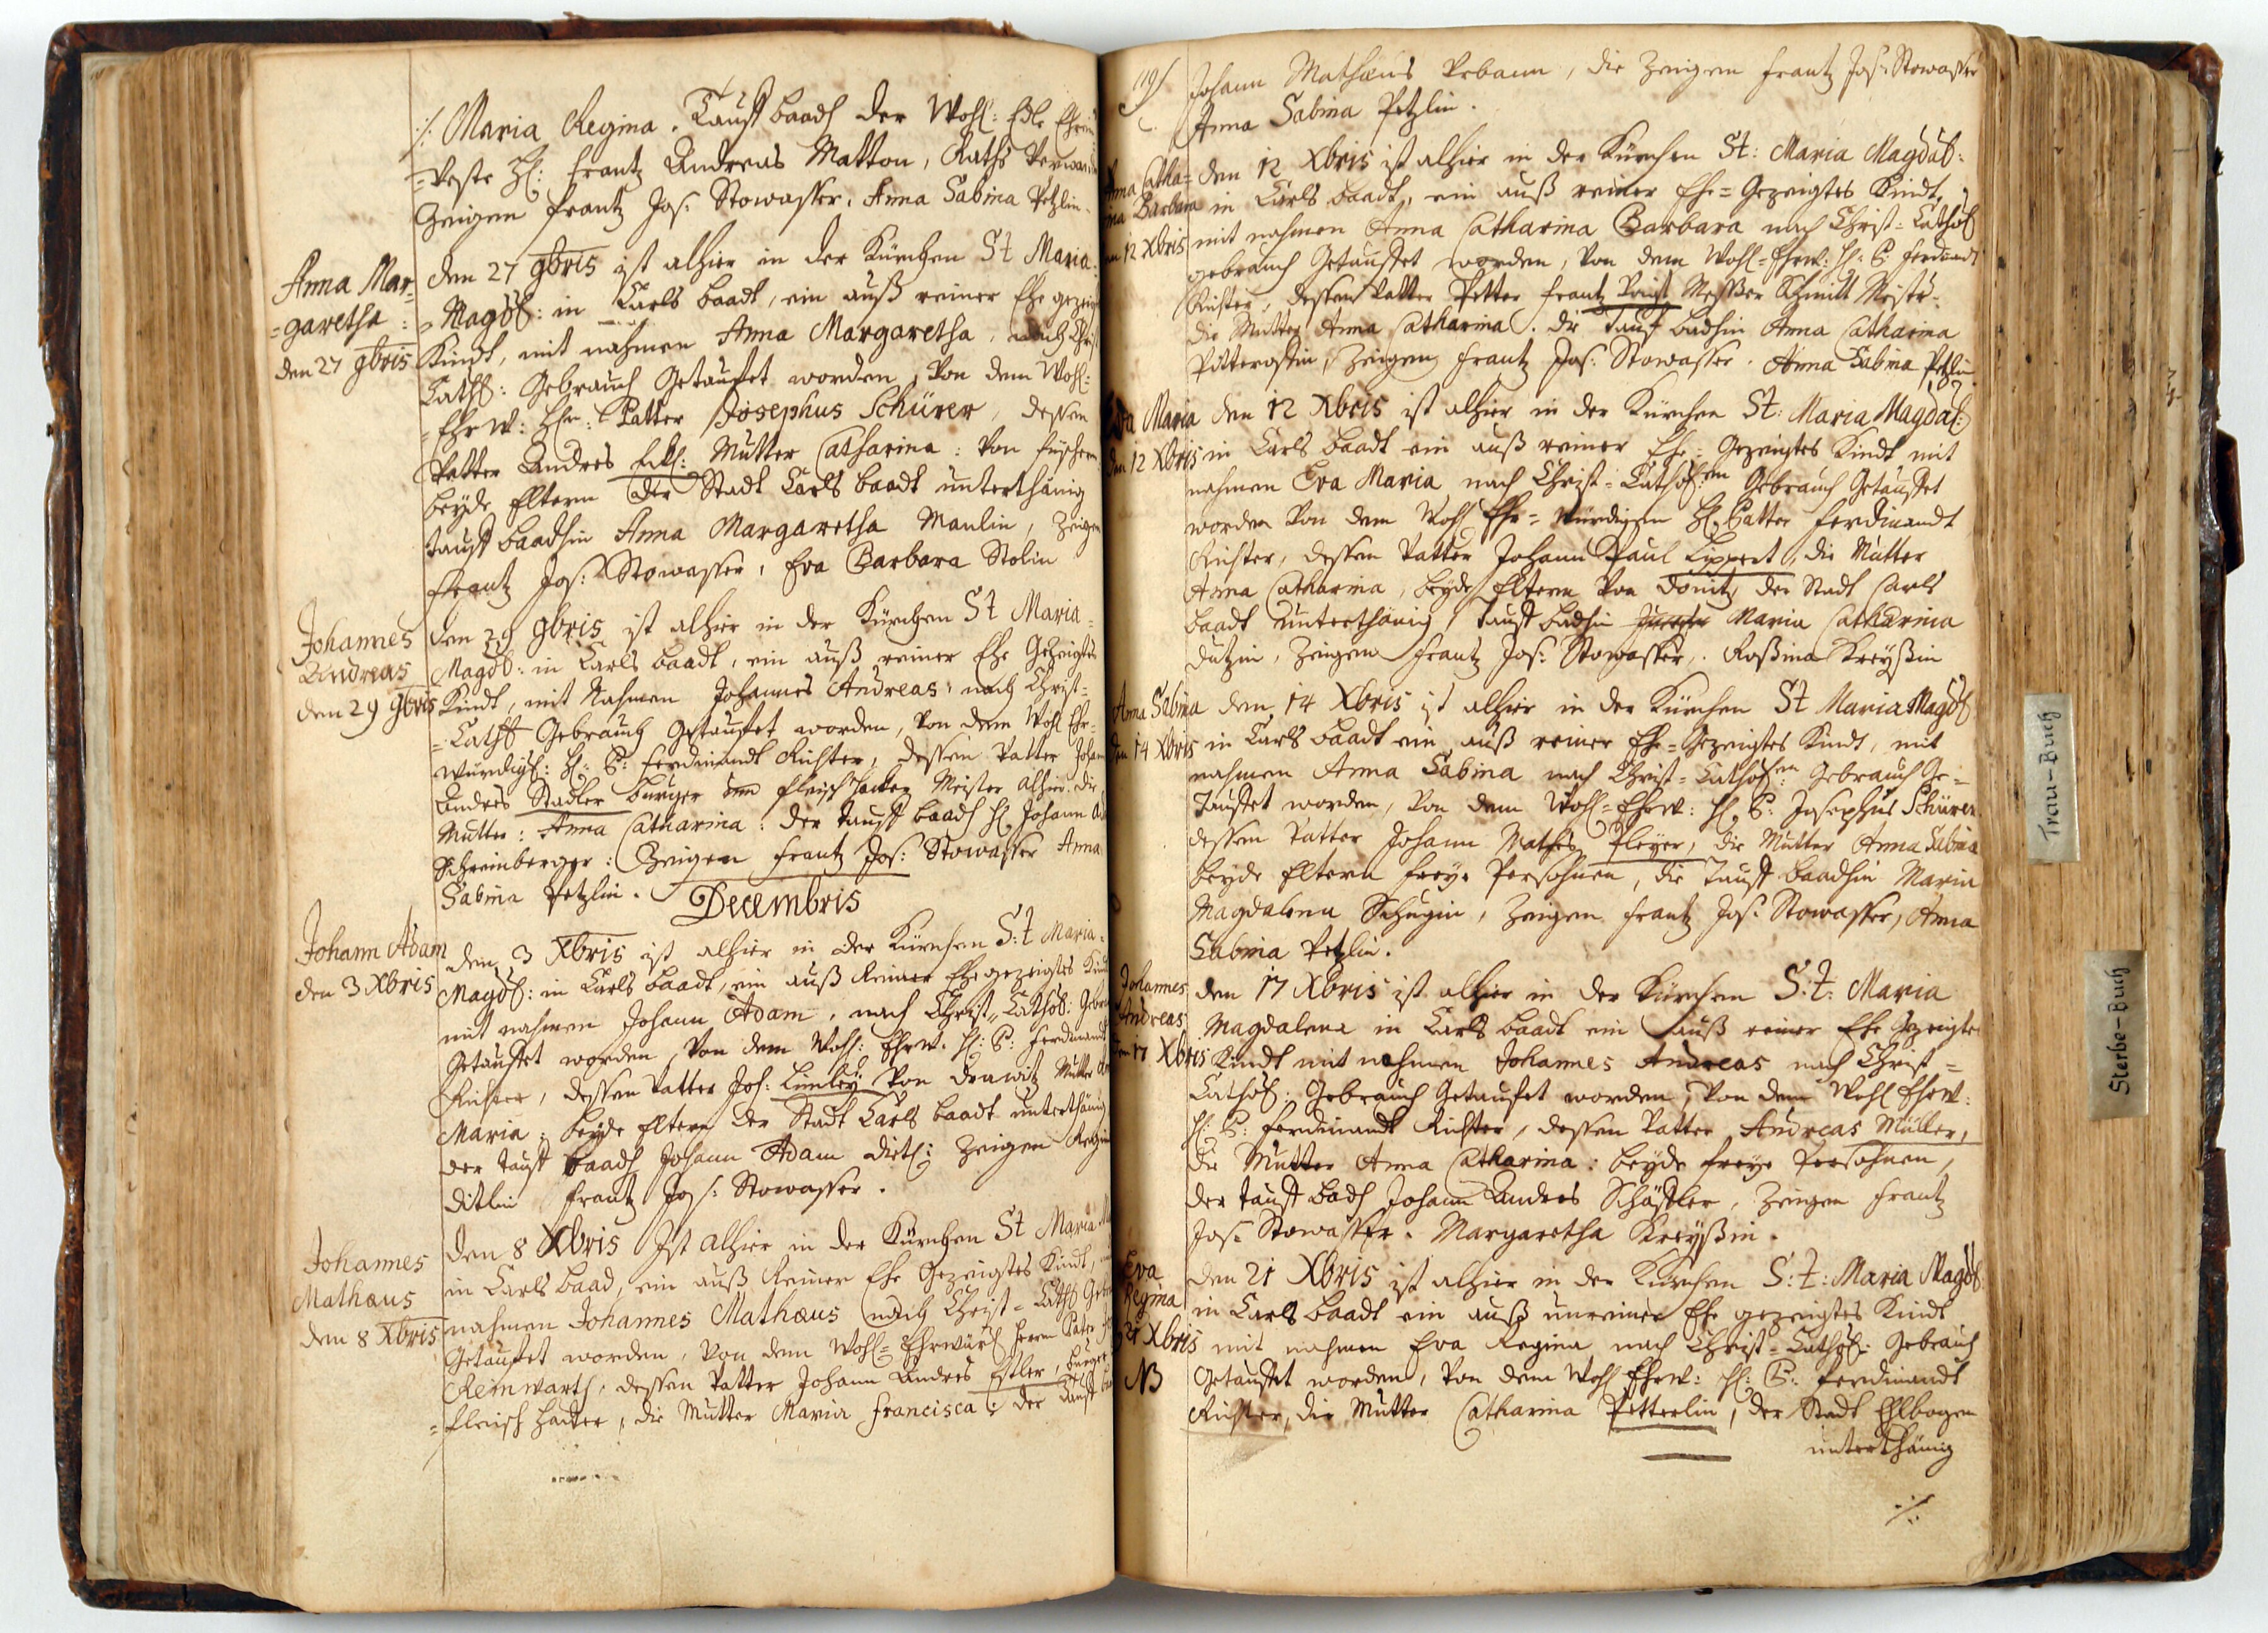 ·/. Maria Regina. Tauff baadh der Wohl: Edle Ehren
=veste H: Frantz Andreas Matton, Raths Verwandt
Zeugen Frantz Jos: Stowasser, Anna Sabina Petzlin.
Anna Mar=
=garetha:
den 27 9bris
den 27 9bris ist alhier in der Kürchen St Maria:
=Magdl: in Carls baadt, ein auß reiner Ehe gezeigt
Kindt, mit nahmen Anna Margaretha, nach Chri
Cathl: Gebrauch Getauffet worden, von dem Wohl:
=Ehrw: Hr: Patter Josephus Schürer, dessen
Vatter Andres Mutter Catharina: von Fischern
beyde Eltern der Stadt Carls baadt unterthänig
tauff baadhin Anna Margaretha Manlin, Zeugen
Frantz Jos: Stowasser, Eva Barbara Stolin
Johannes
Andreas
den 29 9bris
den 29 9bris ist alhier in der Kürchen St Maria=
Magdl: in Carls baadt, ein auß reiner Ehe Gezeigtes
Kindt, mit Nahmen Johannes Andreas, nach Christ=
=Cathl Gebrauch Getauffet worden, von dem Wohl Ehr=
würdigl: H: P: Ferdinandt Richter, dessen Vatter Johan
Andres Stadler burger Fleischhacker Meister alhier. die
Mutter: Anna Catharina: der tauff baadh H. Johann
Schreinberger: Zeugen Frantz Jos: Stowasser Anna
Sabina Petzlin.
Decembris
Johann Adam
den 3 Xbris
den 3 Xbris ist alhier in der Kürchen S:t Maria=
Magdl: in Carls baadt, ein auß Reiner Ehe gezeigtes Kindt
mit nahmen Johann Adam, nach Christ, Cathol: Gebra
Getauffet worden, von dem Wohl: Ehrw: H: P: Ferdinandt
Richter, dessen Vatter Jos: Limley von Drawitz Mutter
Maria: beyde Eltern der Stadt Carls baadt unterthänig
der tauff baadh Johann Adam Dietl: Zeugen Regin
Ditlin Frantz Jos: Stowasser.
Johannes
Mathæus
den 8 Xbris
den 8 Xbris Ist alhier in der Kürchen St Maria M
in Carls baad, ein auß Reiner Ehe Gezeigtes Kindt,
nahmen Johannes Mathæus nach Christ= Cathl Gebr
Getauffet worden, von dem Wohl= Ehrwürd Herrn Pater
Reinwarth, dessen Vatter Johann Andres Estler, burger
=Fleisch hacker, die Mutter Maria Francisca: der Tauff
119
Johann Mathæus Urbann, die Zeugen Frantz Jos: Stowasser
Anna Sabina Petzlin.
Anna Catha=
rina Barbara
den 12 Xbris
den 12 Xbris ist alhier in der Kürchen St: Maria Magdal:
in Carls baadt, ein auß reiner Ehe= Gezeigtes Kindt,
mit nahmen Anna Catharina Barbara nach Christ= Cathol
gebrauch Getauffet worden, von dem Wohl= Ehrw: H: P: Ferdinandt
Richter, dessen Vatter Petter Frantz Messer Schmitt Meister
die Mutter Anna Catharina. die tauf badhin Anna Catharina
Zeugen Frantz Jos: Stowasser. Anna Sabina Petzlin
Eva Maria
den 12 Xbris
den 12 Xbris ist alhier in der Kürchen St: Maria Magdal:
in Carls baadt ein auß reiner Ehe= Gezeigtes Kindt mit
nahmen Eva Maria nach Christ= Cathol:en Gebrauch Getauffet
worden von dem Wohl Ehr= würdigen H. Patter Ferdinandt
Richter, dessen Vatter Johann Paul Lippert, die Mutter
Anna Catharina, beyde Eltern von Donitz, der Stadt Carls
baadt unterthänig, tauff badhin Maria Catharina
Dutzin, Zeugen Frantz Jos: Stowasser, Roßina Kreyßin
Anna Sabina
den 14 Xbris
den 14 Xbris ist alhier in der Kürchen St Maria Magdl
in Carls baadt ein auß reiner Ehe= Gezeigtes Kindt, mit
nahmen Anna Sabina nach Christ= Cathol:en Gebrauch Ge=
Tauffet worden, von dem Wohl= Ehrw: H. P: Josephus Schürer
dessen Vatter Johann Mathes Fleyer, die Mutter Anna Sabina
beyde Eltern freye Persohnen, die Tauff baadhin Maria
Magdalena Schugin, Zeugen Frantz Jos: Stowasser, Anna
Sabina Petzlin.
Johannes
Andreas
den 17 Xbris
den 17 Xbris ist alhier in der Kürchen S:t: Maria
Magdalena in Carls baadt ein auß reiner Ehe Gezeigtes
Kindt mit nahmen Johannes Andreas nach Christ=
Cathol: Gebrauch Getauffet worden, von dem Wohl Ehrw:
H: P: Ferdinandt Richter, dessen Vatter Andreas Müller,
die Mutter Anna Catharina: beyde freye Persohnen,
der tauff badh Johann Andres Schäffler, Zeugen Frantz
Jos: Stowasser. Margaretha Kreyßin.
Eva
Regina
21 Xbris
NB
den 21 Xbris ist alhier in der Kürchen S:t: Maria Magdl
in Carls baadt ein auß unreiner Ehe gezeigtes Kindt
mit nahmen Eva Regina nach Christ= Cathol: Gebrauch
Getauffet worden, von dem Wohl Ehrw: H: P: Ferdinandt
Richter, die Mutter Catharina Petterlin, der Stadt Ehlbogen
unterthänig
·/.
Trau-Buch
Sterbe-Buch